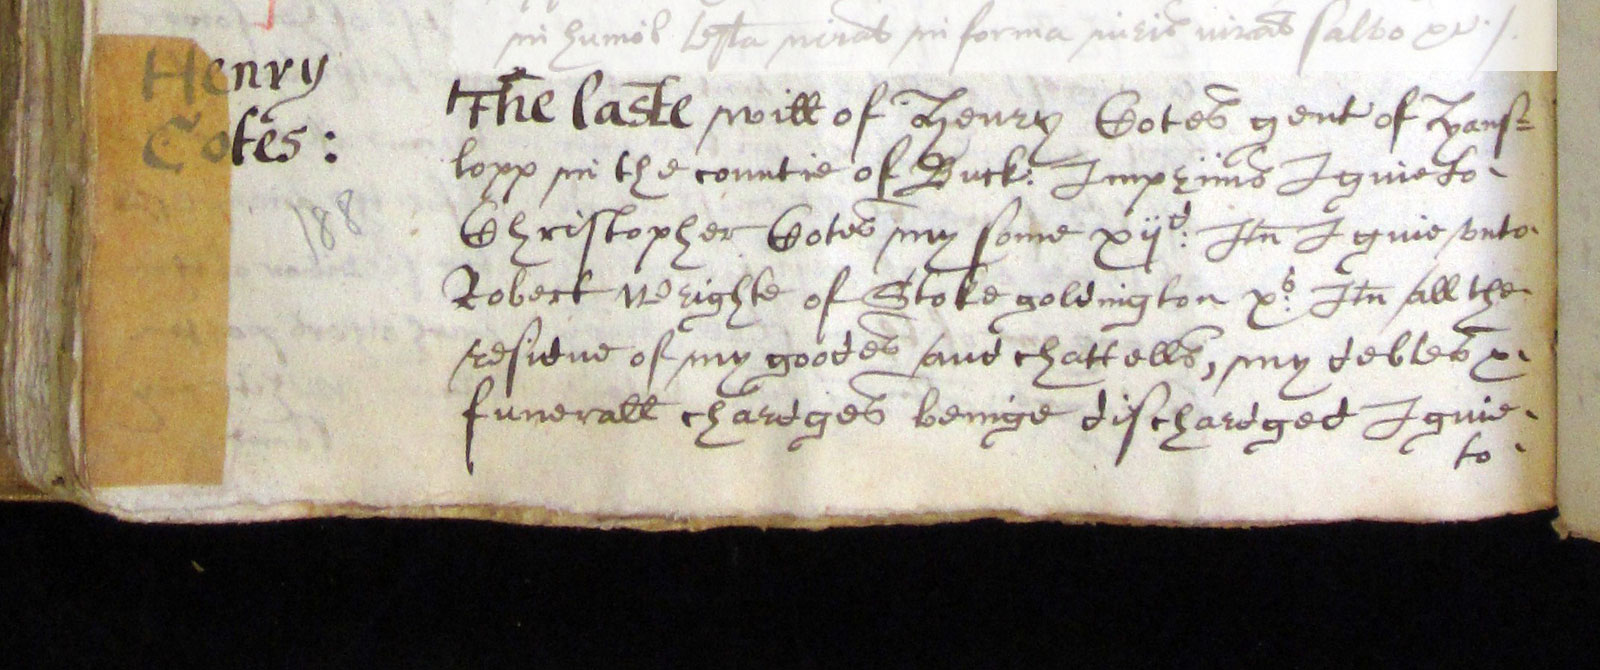 in forma iuris salvo
Henry
Cotes:
188
The laste will of Henry Cotes gent of Hans=
lopp in the countie of Buck: Imprimis I giue to
Christopher Cotes my sonne xijd: Itm I giue vnto
Robert Wrighte of Stoke goldington xs: Itm all the
residue of my goodes and chattells, my debtes &
funerall chardges beinge dischardged I giue
to